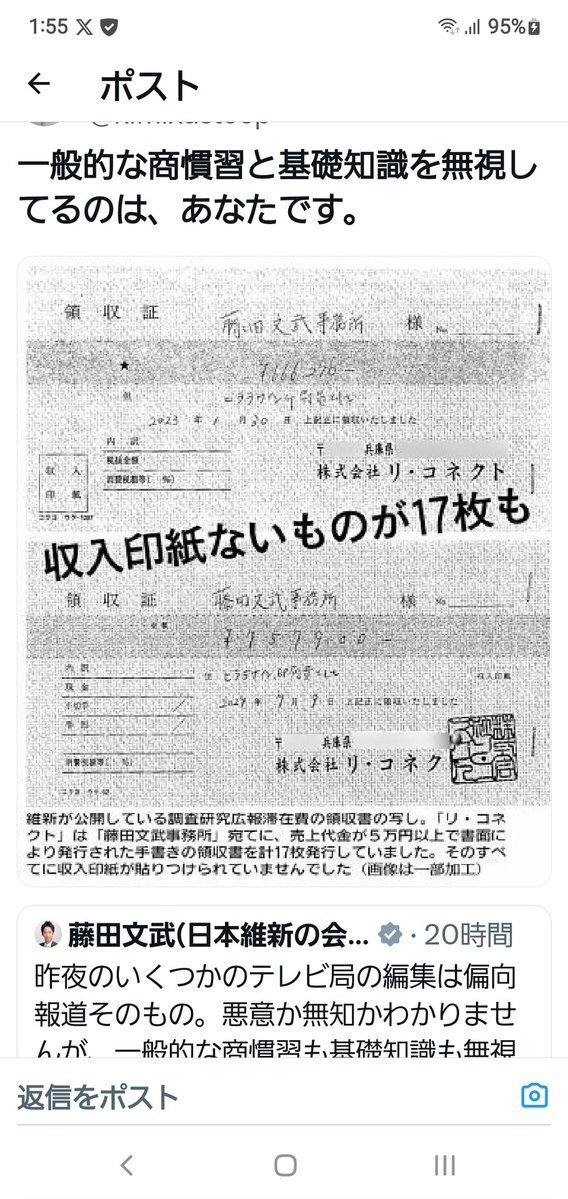 1:55
95%
ポスト
一般的な商慣習と基礎知識を無視し
てるのは、あなたです。
領収証
藤田文武事務所 様 No.
★
但
2023 年 1 月 30 日 上記正に領収いたしました
内訳
税抜金額
消費税額等( %)
収入
印紙
〒 兵庫県
株式会社 リ・コネクト
収入印紙ないものが17枚も
領収証
藤田文武事務所 様 No.
内訳
現金
小切手
手形
消費税額等( %)
但
収入印紙
年 7 月 9 日 上記正に領収いたしました
〒 兵庫県
株式会社 リ・コネク
維新が公開している調査研究広報滞在費の領収書の写し。「リ・コネ
クト」は「藤田文武事務所」宛てに、売上代金が5万円以上で書面に
より発行された手書きの領収書を計17枚発行していました。そのすべ
てに収入印紙が貼りつけられていませんでした（画像は一部加工）
藤田文武(日本維新の会... · 20時間
昨夜のいくつかのテレビ局の編集は偏向
報道そのもの。悪意か無知かわかりませ
んが、一般的な商慣習も基礎知識も無視
返信をポスト